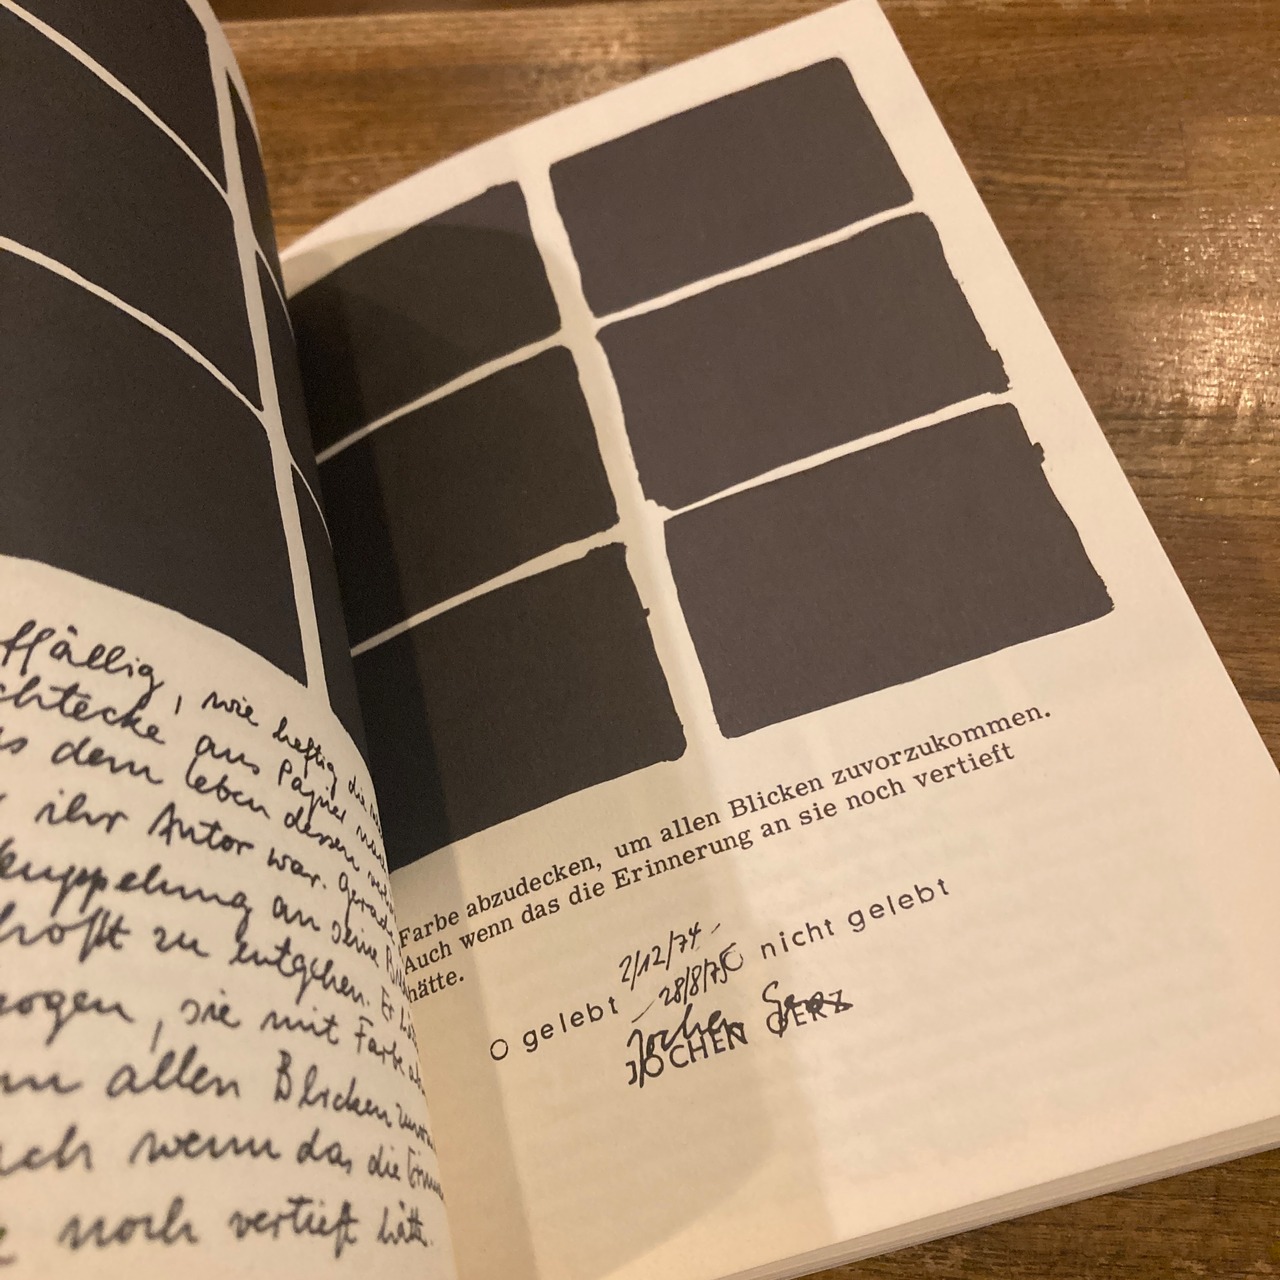 ffällig, wie heftig die
chtecke aus Papier
s dem leben dessen
ihr Autor war. gerade
kuppelung an seine
hofft zu entgehen. Er
zogen, sie mit Farbe
allen Blicken
wenn das die
noch vertieft hätte.
Farbe abzudecken, um allen Blicken zuvorzukommen.
Auch wenn das die Erinnerung an sie noch vertieft
hätte.
2/12/74 -
- 28/8/75
O gelebt O nicht gelebt
Jochen Gerz
JOCHEN GERZ